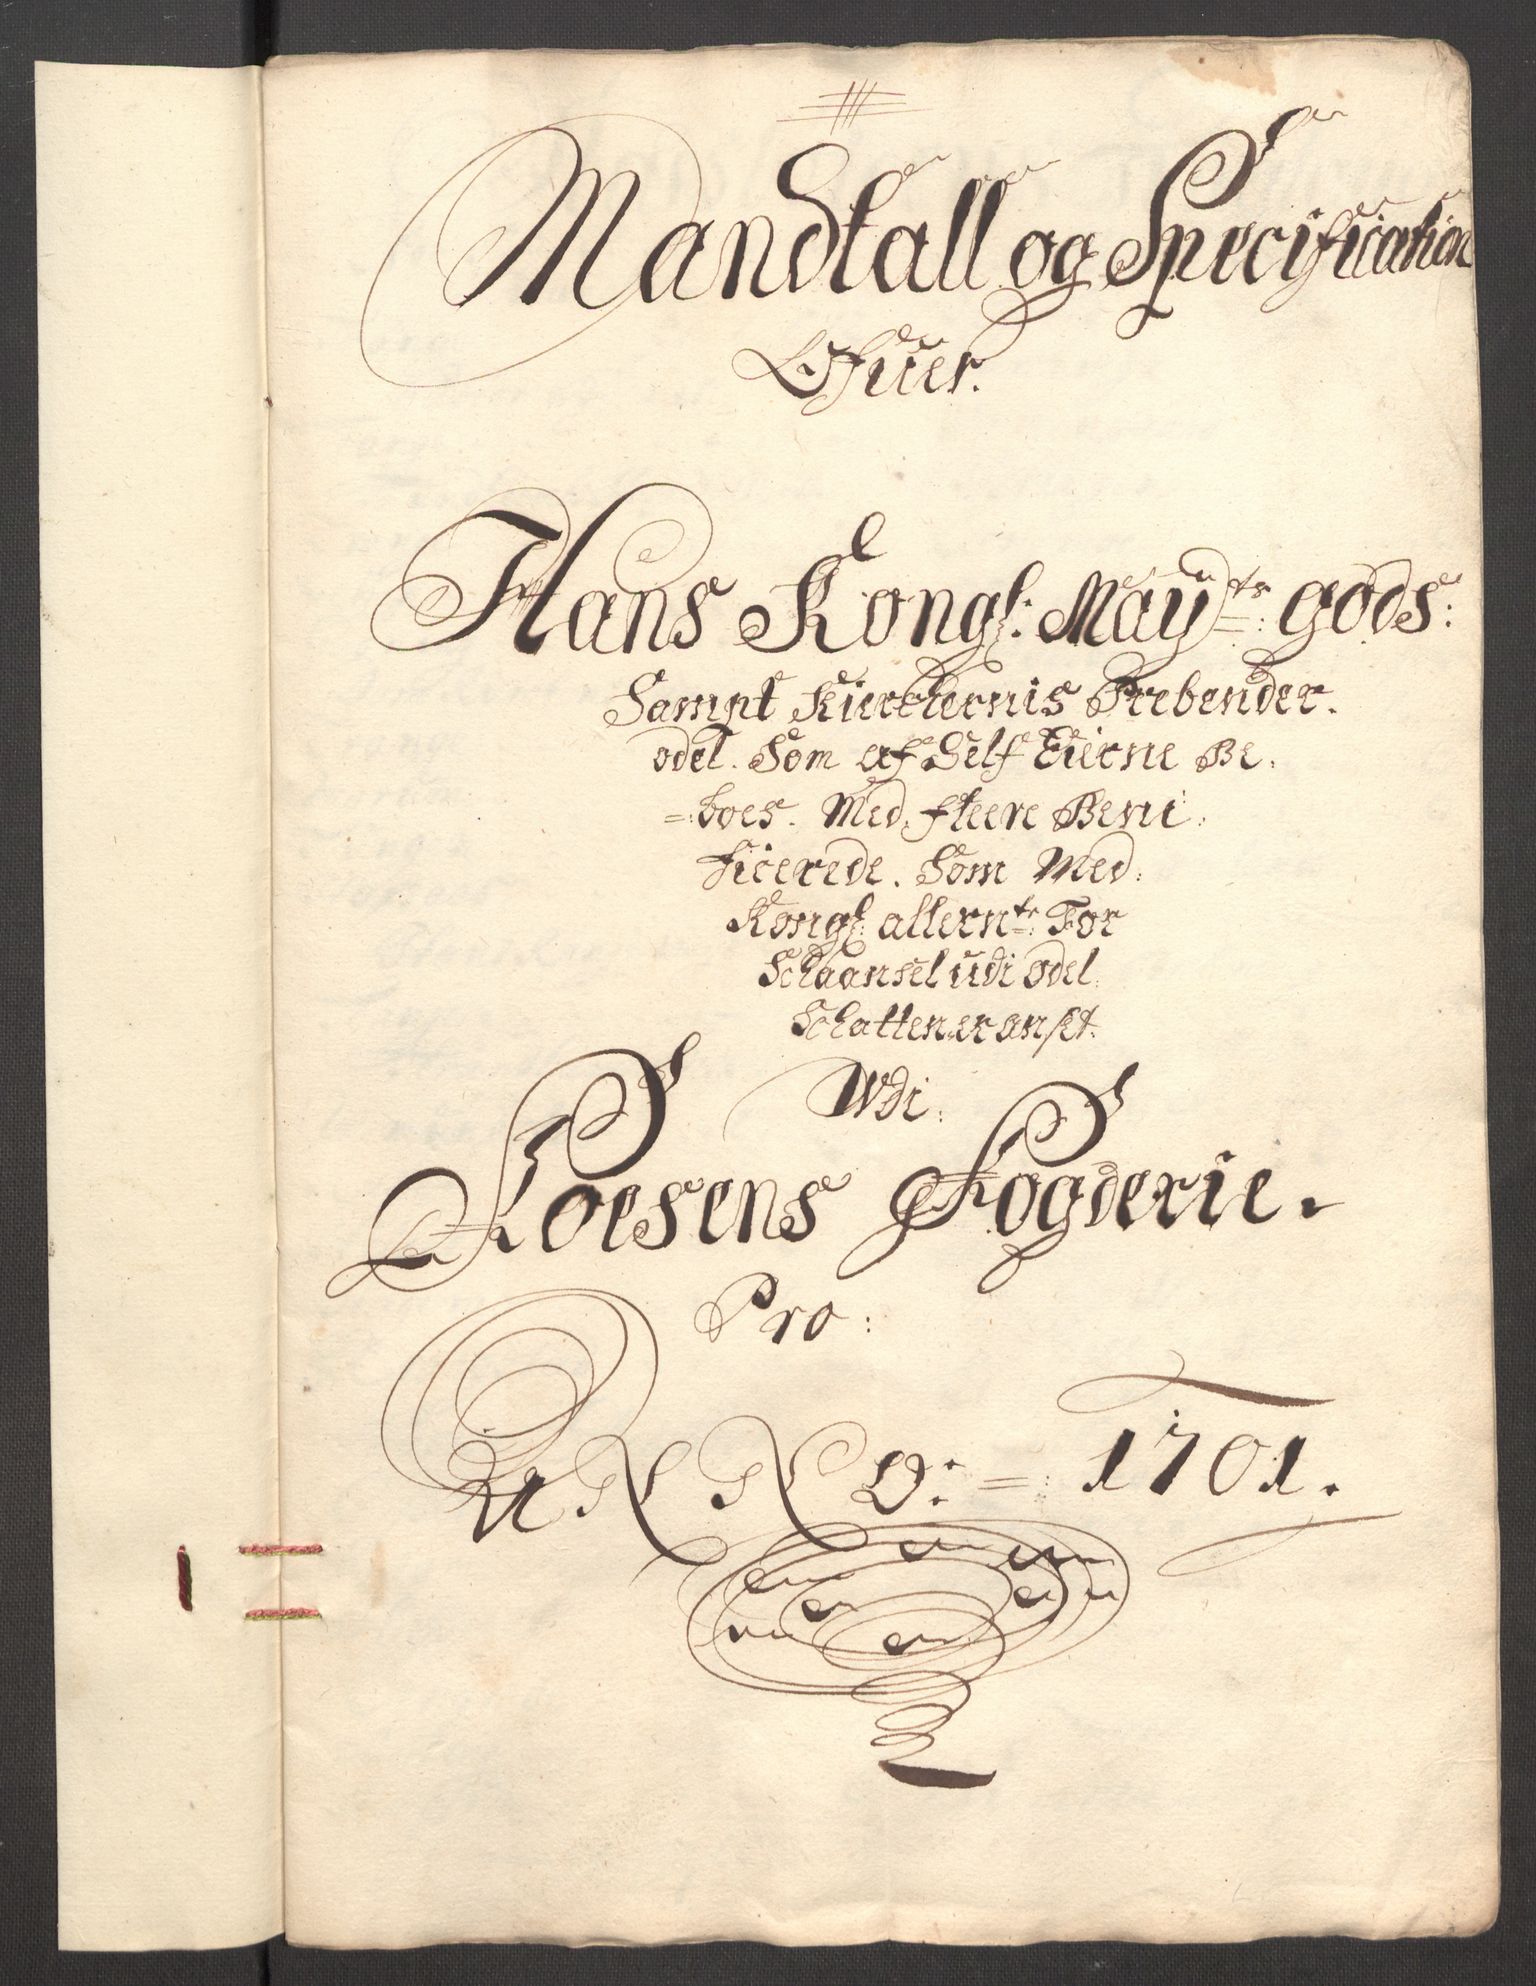 Mandtall og Specification
Ofuer.
Hans Kongl: May:ts gods:
Sampt Kierchernis Prebender.
odel. Som af Self Eierne Be,
=boes. Med, fleere Beni:
ficerede. Som Med:
Kongl: allern:te For
Schaansel udi odel.
Schatten er ansl:
Wdi:
Foesens Fogderie.
Pro:
ANNO: =: 1701.